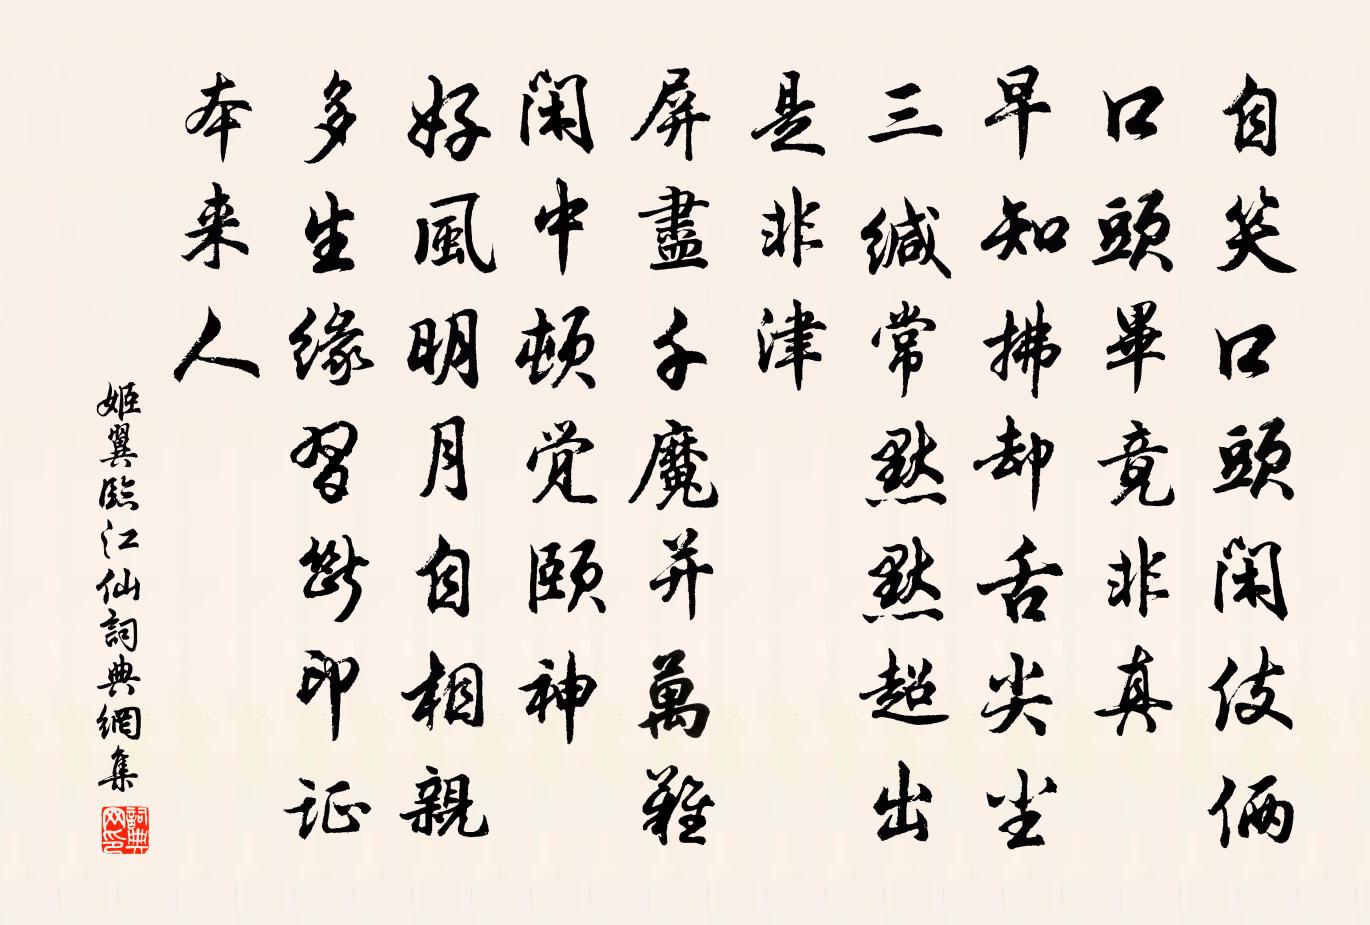 自笑口頭閑伎倆
口頭畢竟非真
早知拂却舌尖尘
三缄常默默超出
是非津
屏盡千魔并萬難
閑中頓觉頤神
好風明月自相親
多生缘習斷印证
本来人
姬翼臨江仙詞典網集
詞典網印